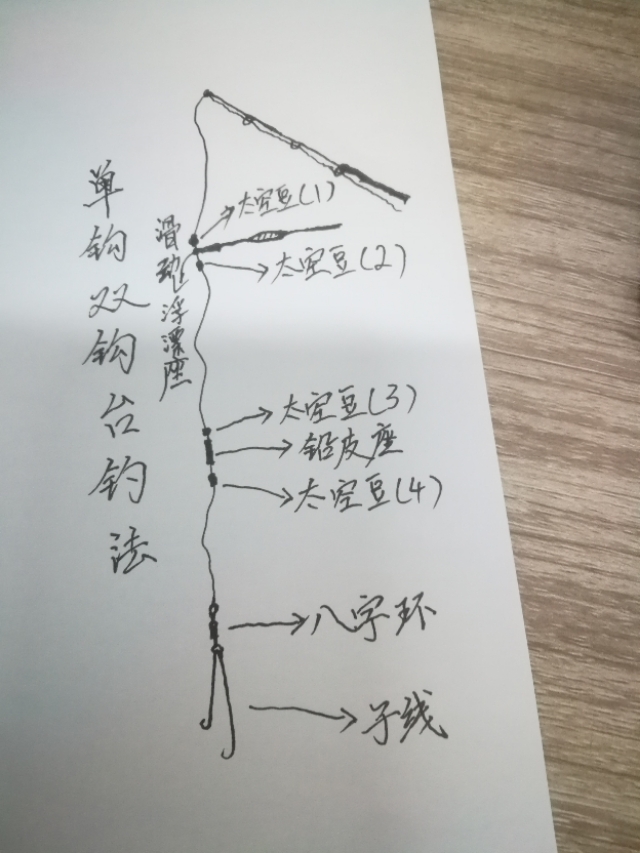 单钩双钩台钓法
太空豆(1)
滑动浮漂座
太空豆(2)
太空豆(3)
铅皮座
太空豆(4)
八字环
子线